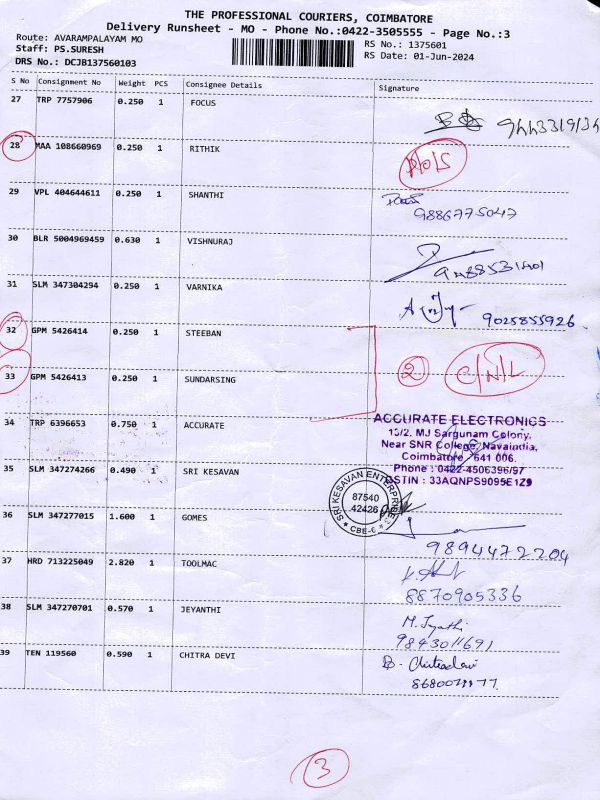 THE PROFESSIONAL COURIERS, COIMBATORE
Delivery Runsheet - MO - Phone No.:0422-3505555 - Page No.:3
Route: AVARAMPALAYAM MO
Staff: PS.SURESH
DRS No.: DCJB137560103
RS No.: 1375601
RS Date: 01-Jun-2024
S No Consignment No Weight PCS Consignee Details Signature
27 TRP 7757906 0.250 1 FOCUS
28 MAA 108660969 0.250 1 RITHIK
29 VPL 404644611 0.250 1 SHANTHI
9886775047
30 BLR 5004969459 0.630 1 VISHNURAJ
31 SLM 347304294 0.250 1 VARNIKA
9025855926
32 GPM 5426414 0.250 1 STEEBAN
2 C/N/L
33 GPM 5426413 0.250 1 SUNDARSING
34 TRP 6396653 0.750 1 ACCURATE
ACCURATE ELECTRONICS
13/2, MJ Sargunam Colony,
Near SNR College, Navaindia,
Coimbatore 641 006.
Phone : 0422-4506396/97
GSTIN : 33AQNPS9095E1Z9
35 SLM 347274266 0.490 1 SRI KESAVAN
SRI KESAVAN ENTERPRISES
87540
42426
CBE-6
36 SLM 347277015 1.600 1 GOMES
9894472204
37 HRD 713225049 2.820 1 TOOLMAC
8870905336
38 SLM 347270701 0.570 1 JEYANTHI
M. Jyothi
9843011691
39 TEN 119560 0.590 1 CHITRA DEVI
B. Chitradevi
3